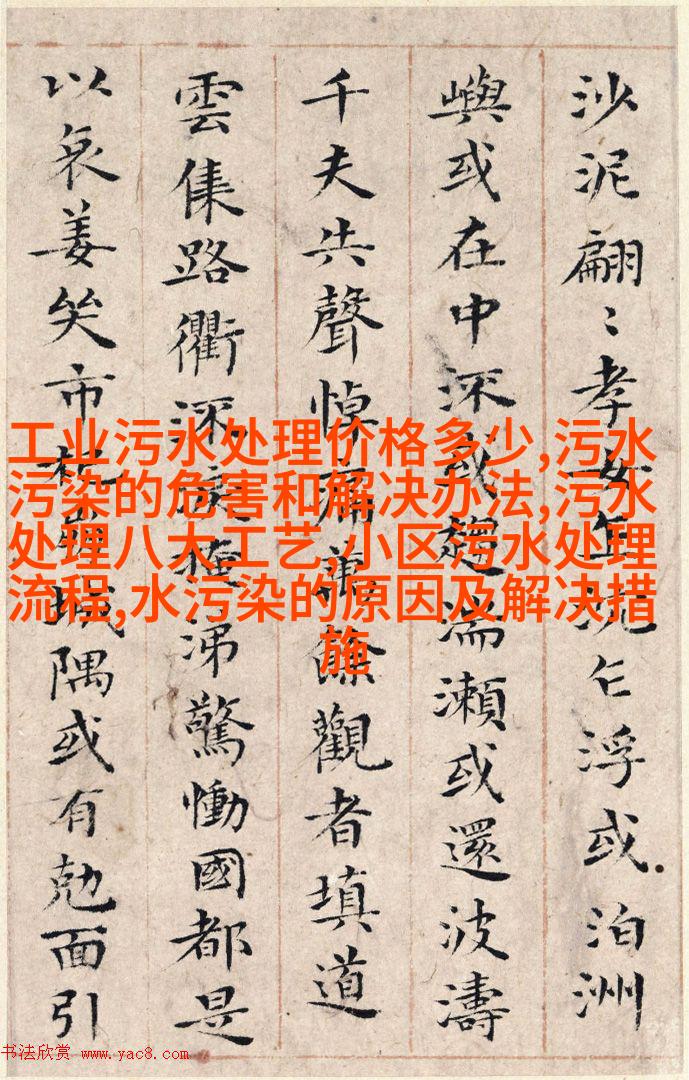 沙泥翩〻孝女乍沉乍浮或泊洲
嶼或在中流或趍湍瀨或還波濤
千夫失聲悼痛萬餘觀者填道
雲集路衢流淚掩涕驚慟國都是
以哀姜哭市杞崩城隅或有剋面引
工业污水处理价格多少,污水
污染的危害和解决办法,污水
处理八大工艺,小区污水处理
流程,水污染的原因及解决措
施
书法欣赏 www.yac8.com